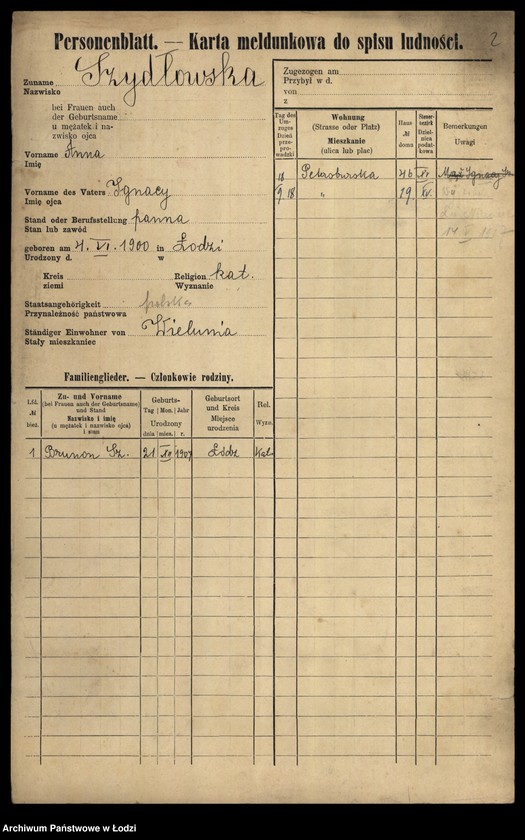 Personenblatt. — Karta meldunkowa do spisu ludności.
2
Zuname Szydłowska
Nazwisko
bei Frauen auch
der Geburtsname
u mężatek i na-
zwisko ojca
Vorname Anna
Imię
Vorname des Vaters Ignacy
Imię ojca
Stand oder Berufsstellung panna
Stan lub zawód
geboren am 4. VI. 1900 in Łodzi
Urodzony d. w
Kreis Religion kat.
ziemi Wyznanie
Staatsangehörigkeit polska
Przynależność państwowa
Ständiger Einwohner von Wielunia
Stały mieszkaniec
Zugezogen am
Przybył w d.
von
z
Tag des Um-zuges Dzień prze-prowadzki
Wohnung
(Strasse oder Platz)
Mieszkanie
(ulica lub plac)
Haus № domu
Steuer-bezirk Dziel-nica podat-kowa
Bemerkungen
Uwagi
18 Petersburska 46 VI Maż Ignacy Sz.
9 18 " 19. VI.
Familienglieder. — Członkowie rodziny.
Lfd. № bież.
Zu- und Vorname
(bei Frauen auch der Geburtsname)
und Stand
Nazwisko i imię
(u mężatek i nazwisko ojca)
i stan
Geburts-
Tag Mon. Jahr
Urodzony
dnia mies. r.
Geburtsort
und Kreis
Miejsce
urodzenia
Rel.
Wyzn.
1 Brunon Sz. 21 1907 Łódź Kat.
Archiwum Państwowe w Łodzi